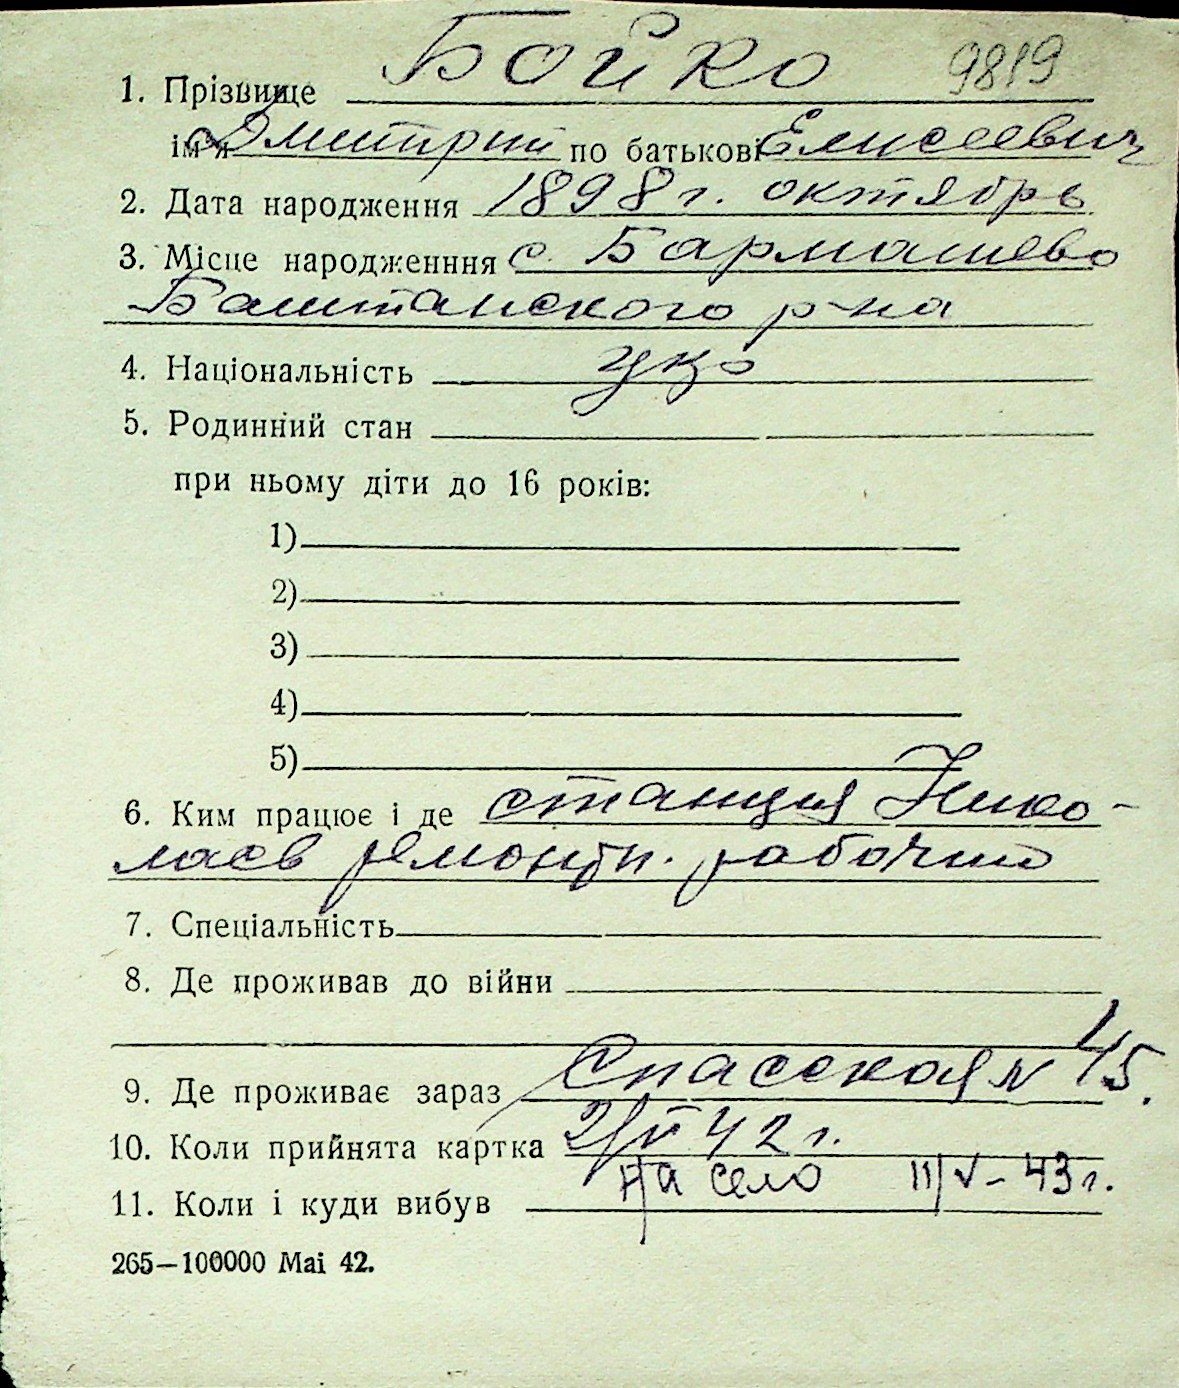 Бойко 9819
1. Прізвище
ім'я Дмитрий по батькові Елисеевич
2. Дата народження 1898 г. октябрь
3. Місце народженння с. Бармашево
Баштанского р-на
4. Національність укр
5. Родинний стан
при ньому діти до 16 років:
1)
2)
3)
4)
5)
6. Ким працює і де станция Нико-
лаев ремонтн. рабочий
7. Спеціальність
8. Де проживав до війни
9. Де проживає зараз Спасская N 45.
10. Коли прийнята картка 42 г.
на село 43 г.
11. Коли і куди вибув
265—100000 Mai 42.